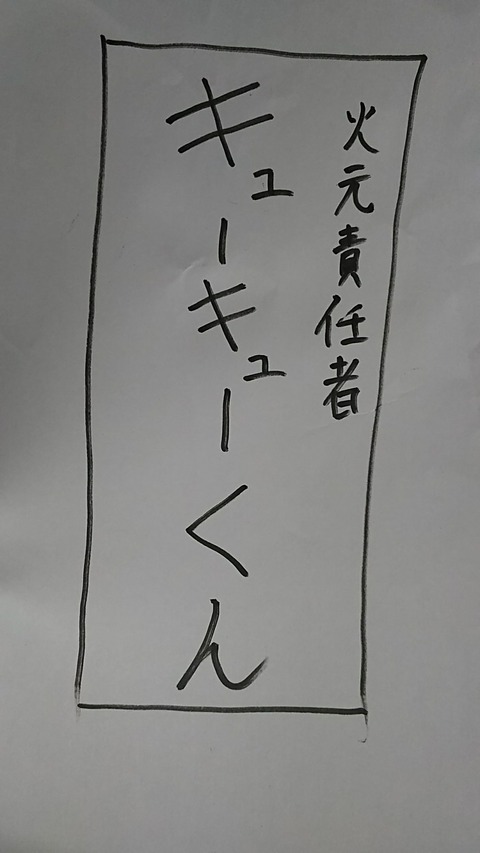 火元責任者
キューキューくん